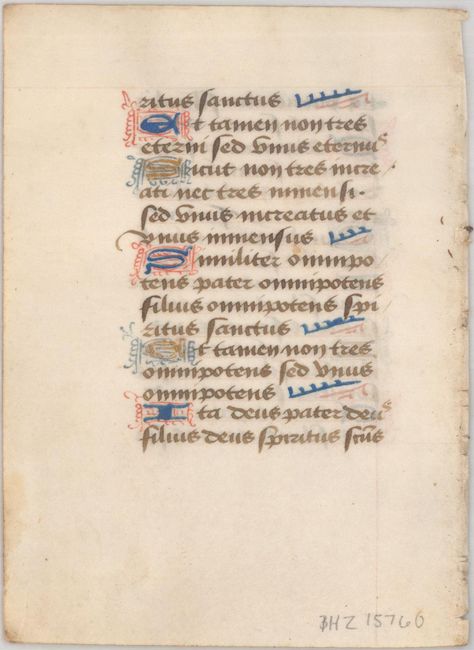 ritus sanctus
Et tamen non tres
eterni sed vnus eternus
Sicut non tres incre
ati nec tres inmensi.
sed vnus increatus et
vnus inmensus
Similiter omnipo
tens pater omnipotens
filius omnipotens spi
ritus sanctus
Et tamen non tres
omnipotens sed vnus
omnipotens
Ita deus pater deus
filius deus spiritus scūs
BHZ 15760